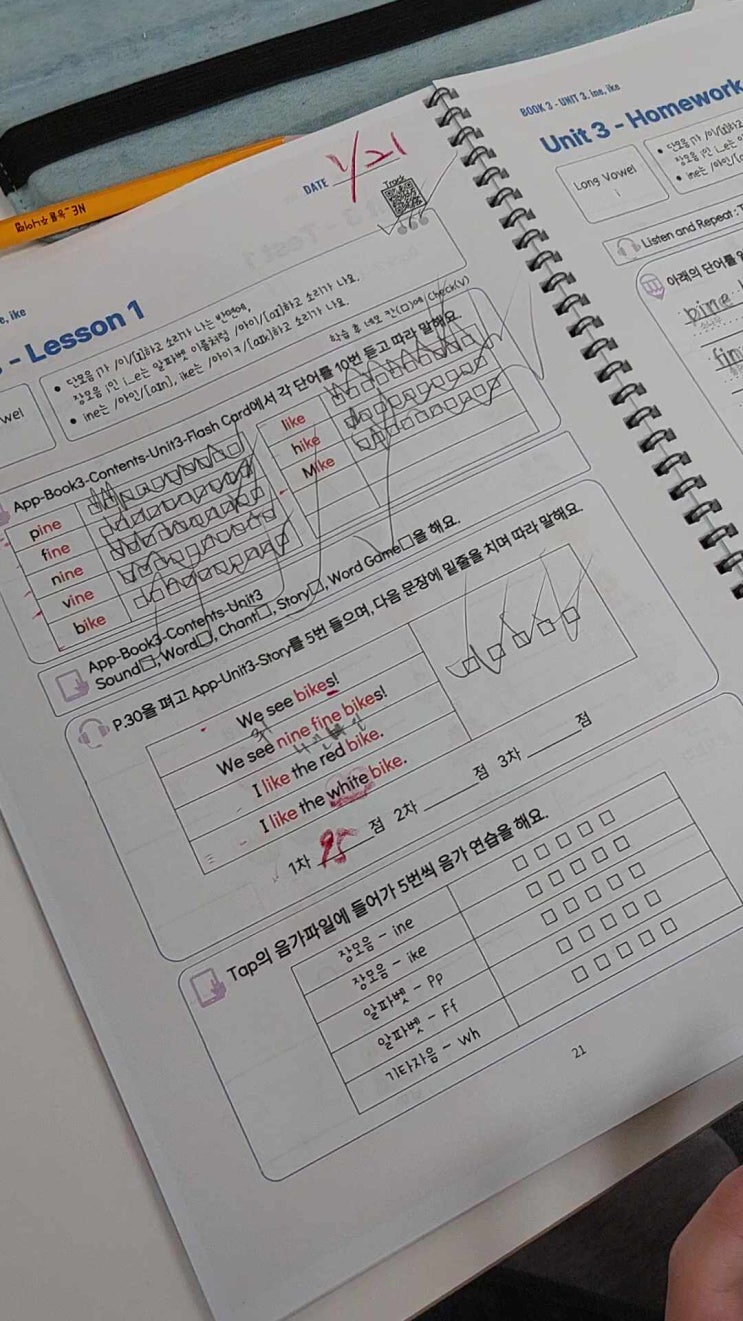 NE_능률 주니어랩
DATE 1/21
Track
e, ike
- Lesson 1
wel
• 단모음 i가 /이/[ɪ]하고 소리가 나는 반면에,
장모음 i인 i_e는 알파벳 이름처럼 /아이/[aɪ]하고 소리가 나요.
• ine는 /아인/[aɪn], ike는 /아이크/[aɪk]하고 소리가 나요.
학습 후 네모 칸(□)에 Check(v)
App-Book3-Contents-Unit3-Flash Card에서 각 단어를 10번 듣고 따라 말해요.
pine
fine
nine
vine
bike
like
hike
Mike
App-Book3-Contents-Unit3
Sound□, Word□, Chant□, Story□, Word Game□을 해요.
P.30을 펴고 App-Unit3-Story를 5번 들으며, 다음 문장에 밑줄을 치며 따라 말해요.
We see bikes!
We see nine fine bikes!
I like the red bike.
I like the white bike.
1차 95 점 2차 점 3차 점
Tap의 음가파일에 들어가 5번씩 음가 연습을 해요.
장모음 - ine
장모음 - ike
알파벳 - Pp
알파벳 - Ff
기타자음 - wh
21
BOOK 3 - UNIT 3. ine, ike
Unit 3 - Homework
Long Vowel
i
• 단모음 i가 /이/[ɪ]하고
장모음 i인 i_e는
• ine는 /아인/[
Listen and Repeat : T
아래의 단어를 읽
pine
fin